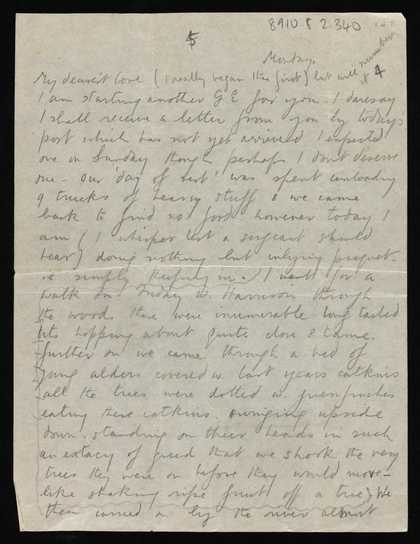 8910 8 2.340
5
Monday.
My dearest love (I really began this first) but will number it 4
I am starting another G E for you. I daresay
I shall receive a letter from you by todays
post which has not yet arrived I expected
one on Sunday though perhaps I dont deserve
one - Our 'day of rest' was spent unloading
9 trucks of heavy stuff & we came
back to find no food however today I
am (I whisper lest a sergeant should
hear) doing nothing but
simply I went for a
walk on Friday w. Harrison through
the woods there were innumerable long tailed
tits hopping about quite close & tame.
further on we came through a bed of
young alders covered w last years catkins
all the trees were dotted w. greenfinches
eating these catkins. swinging upside
down. standing on their heads in such
an extacy of greed that we shook the very
trees they were on before they would move -
like shaking ripe fruit off a tree) We
then curved in by the river almost